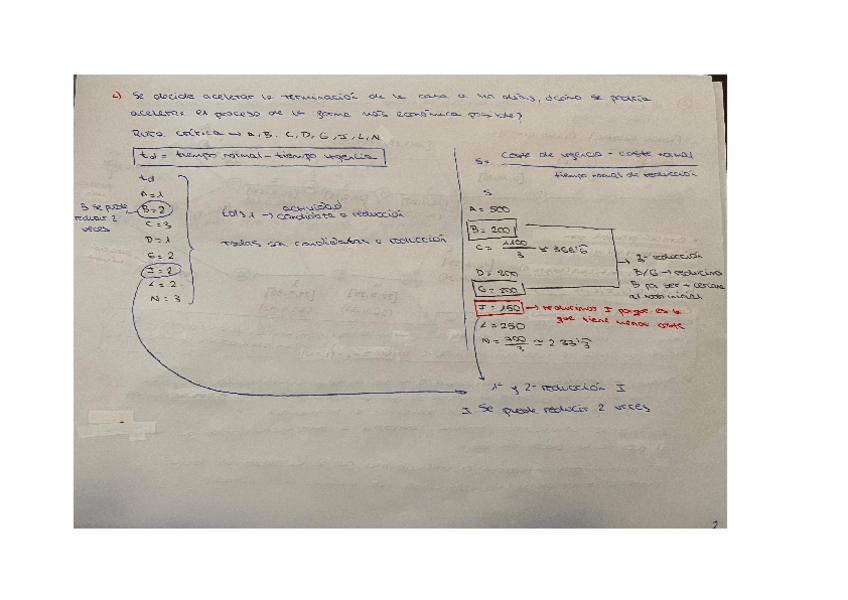 c) Se decide acelerar la terminación de la casa a los días, ¿cómo se podría
acelerar el proceso de la forma más económica posible?
Ruta crítica → A, B, C, D, G, I, L, N
td = tiempo normal - tiempo urgencia
td
A = 1
B = 2
C = 3
D = 1
G = 2
I = 2
L = 2
N = 3
B se puede
reducir 2
veces
td ≥ 1 → actividad
candidata a reducción
Todas son candidatas a reducción
S = coste de urgencia - coste normal
tiempo normal de reducción
S
A = 500
B = 200
C = 1100/3
D = 200
G = 200
I = 150 → reducimos I porque es la
que tiene menos coste
L = 250
N = 700/3 ≃ 233'3
3ª reducción
B/G → reducimos
B por ser + cercana
al nodo inicial
1ª y 2ª reducción I
I se puede reducir 2 veces
2